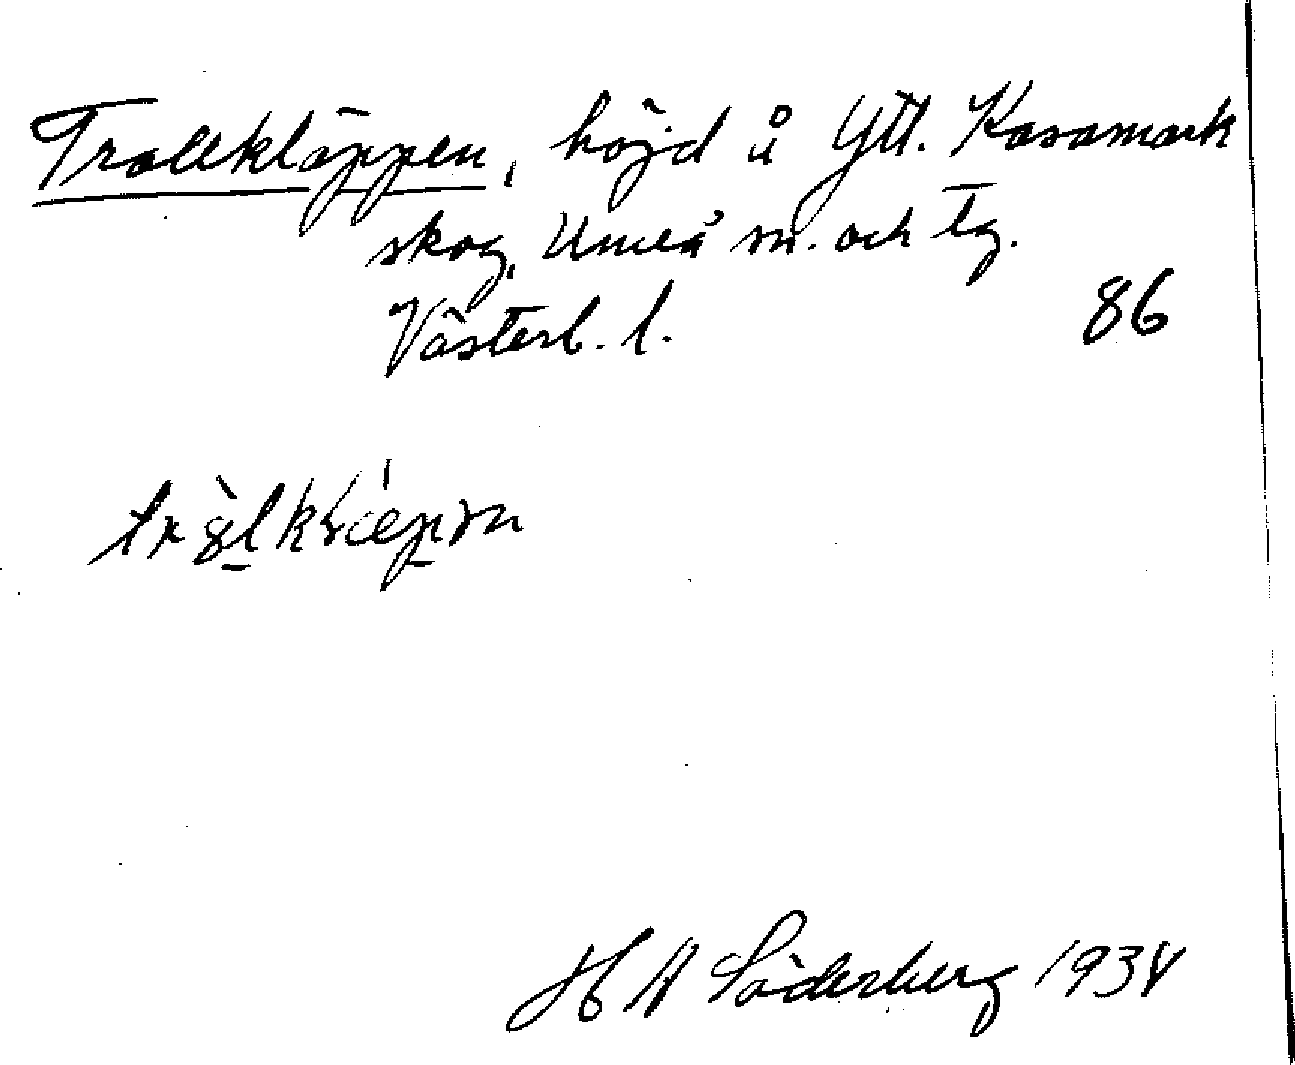 Trollkläppen, höjd å Ytt. Kasamark
skog, Umeå sn. och tg.
Västerb. l.
86
H A Söderberg 1934